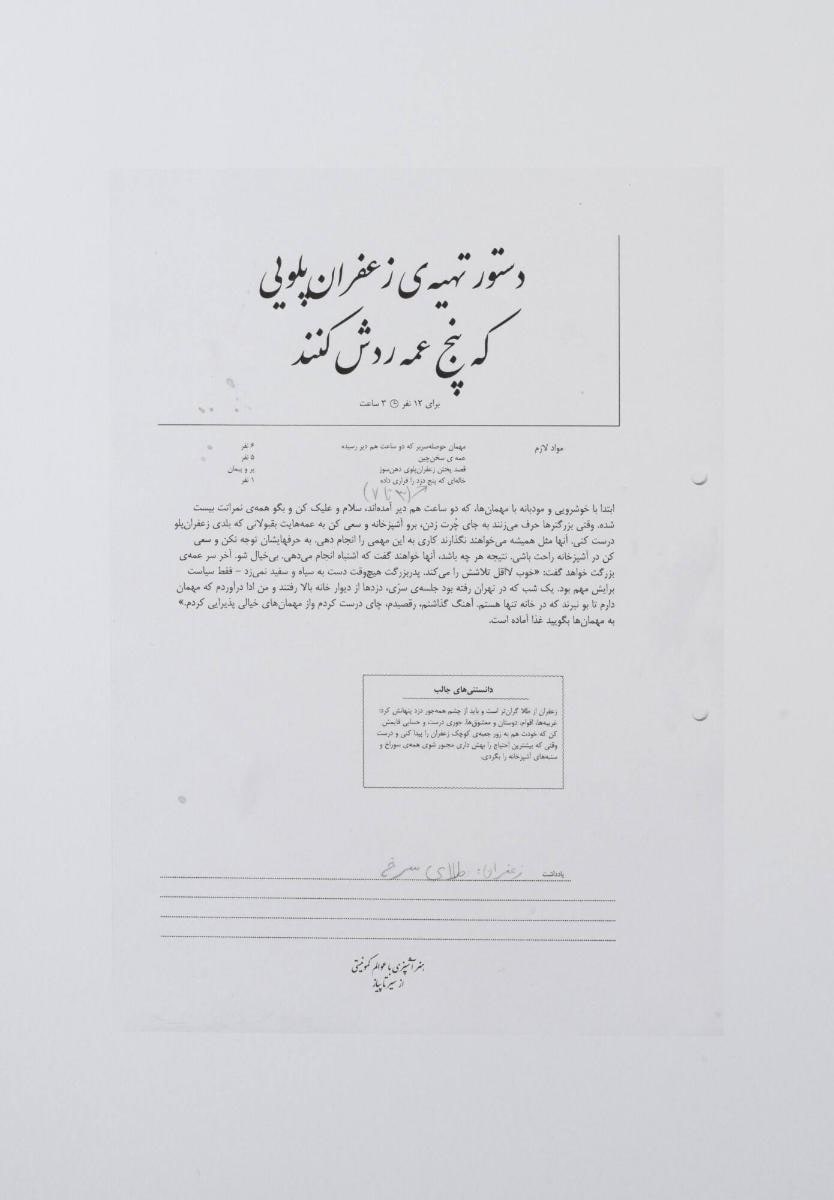 دستور تهیه‌ی زعفران‌پلویی
که پنج عمه ردش کنند
برای ۱۲ نفر ۳ ساعت
مواد لازم
مهمان حوصله‌سربر که دو ساعت هم دیر رسیده ۶ نفر
عمه ی سخن‌چین ۵ نفر
قصد پختن زعفران‌پلوی دهن‌سوز پر و پیمان
خاله‌ای که پنج دزد را فراری داده ۱ نفر
(۳ تا ۷)
ابتدا با خوشرویی و مودبانه با مهمان‌ها، که دو ساعت هم دیر آمده‌اند، سلام و علیک کن و بگو همه‌ی نمراتت بیست
شده. وقتی بزرگترها حرف می‌زنند به جای چُرت زدن، برو آشپزخانه و سعی کن به عمه‌هایت بقبولانی که بلدی زعفران‌پلو
درست کنی. آنها مثل همیشه می‌خواهند نگذارند کاری به این مهمی را انجام دهی. به حرفهایشان توجه نکن و سعی
کن در آشپزخانه راحت باشی. نتیجه هر چه باشد، آنها خواهند گفت که اشتباه انجام می‌دهی. بی‌خیال شو. آخر سر عمه‌ی
بزرگت خواهد گفت: «خوب لااقل تلاشش را می‌کند. پدربزرگت هیچ‌وقت دست به سیاه و سفید نمی‌زد - فقط سیاست
برایش مهم بود. یک شب که در تهران رفته بود جلسه‌ی سرّی، دزدها از دیوار خانه بالا رفتند و من ادا درآوردم که مهمان
دارم تا بو نبرند که در خانه تنها هستم. آهنگ گذاشتم، رقصیدم، چای درست کردم واز مهمان‌های خیالی پذیرایی کردم.»
به مهمان‌ها بگویید غذا آماده است.
دانستنی‌های جالب
زعفران از طلا گران‌تر است و باید از چشم همه‌جور دزد پنهانش کرد:
غریبه‌ها، اقوام، دوستان و معشوق‌ها. جوری درست و حسابی قایمش
کن که خودت هم به زور جعبه‌ی کوچک زعفران را پیدا کنی و درست
وقتی که بیشترین احتیاج را بهش داری مجبور شوی همه‌ی سوراخ و
سنبه‌های آشپزخانه را بگردی.
یادداشت زعفران: طلای سرخ
هنر آشپزی با عوالم کمونیستی
از سیر تا پیاز